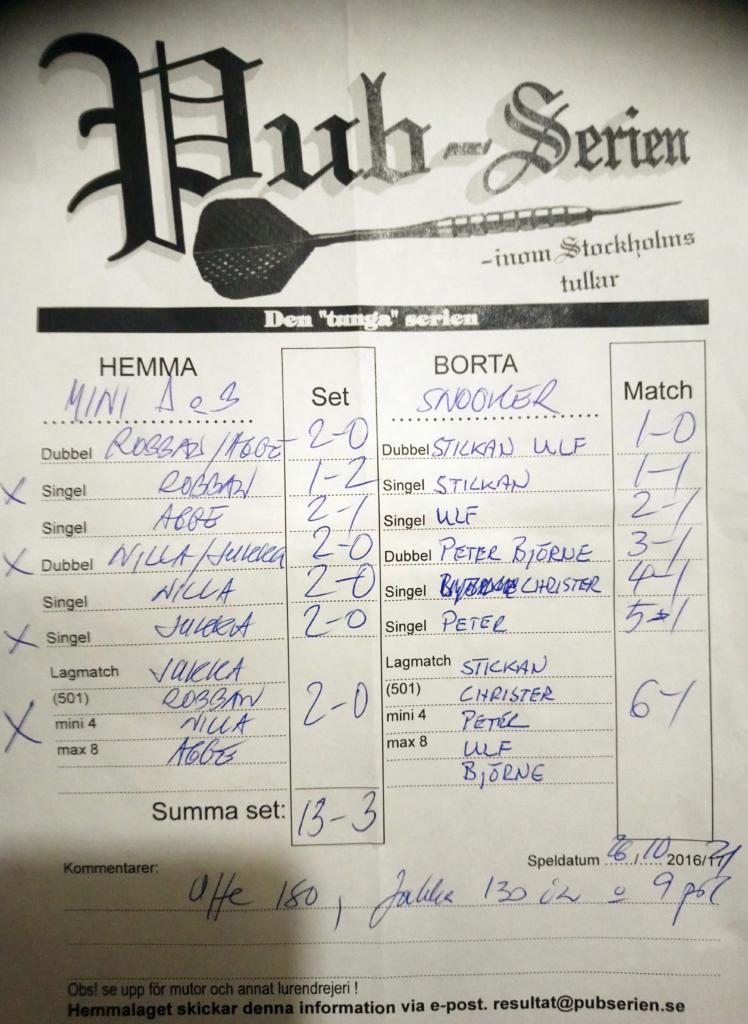 Pub-Serien
-inom Stockholms
tullar
Den "tunga" serien
HEMMA Set BORTA Match
MINI SNOOKER
Dubbel ROBBAN/ABBE 2-0 Dubbel STICKAN ULF 1-0
X Singel ROBBAN 1-2 Singel STICKAN 1-1
Singel ABBE 2-1 Singel ULF 2-1
X Dubbel NILLA/JUKKA 2-0 Dubbel PETER BJÖRNE 3-1
Singel NILLA 2-0 Singel CHRISTER 4-1
X Singel JUKKA 2-0 Singel PETER 5-1
Lagmatch JUKKA Lagmatch STICKAN
(501) ROBBAN 2-0 (501) CHRISTER 6-1
X mini 4 NILLA mini 4 PETER
max 8 ABBE max 8 ULF
BJÖRNE
Summa set: 13-3
Speldatum 26/10 2016/17 21
Kommentarer:
Uffe 180, Jukka 130 ut o 9 pil
Obs! se upp för mutor och annat lurendrejeri !
Hemmalaget skickar denna information via e-post. resultat@pubserien.se